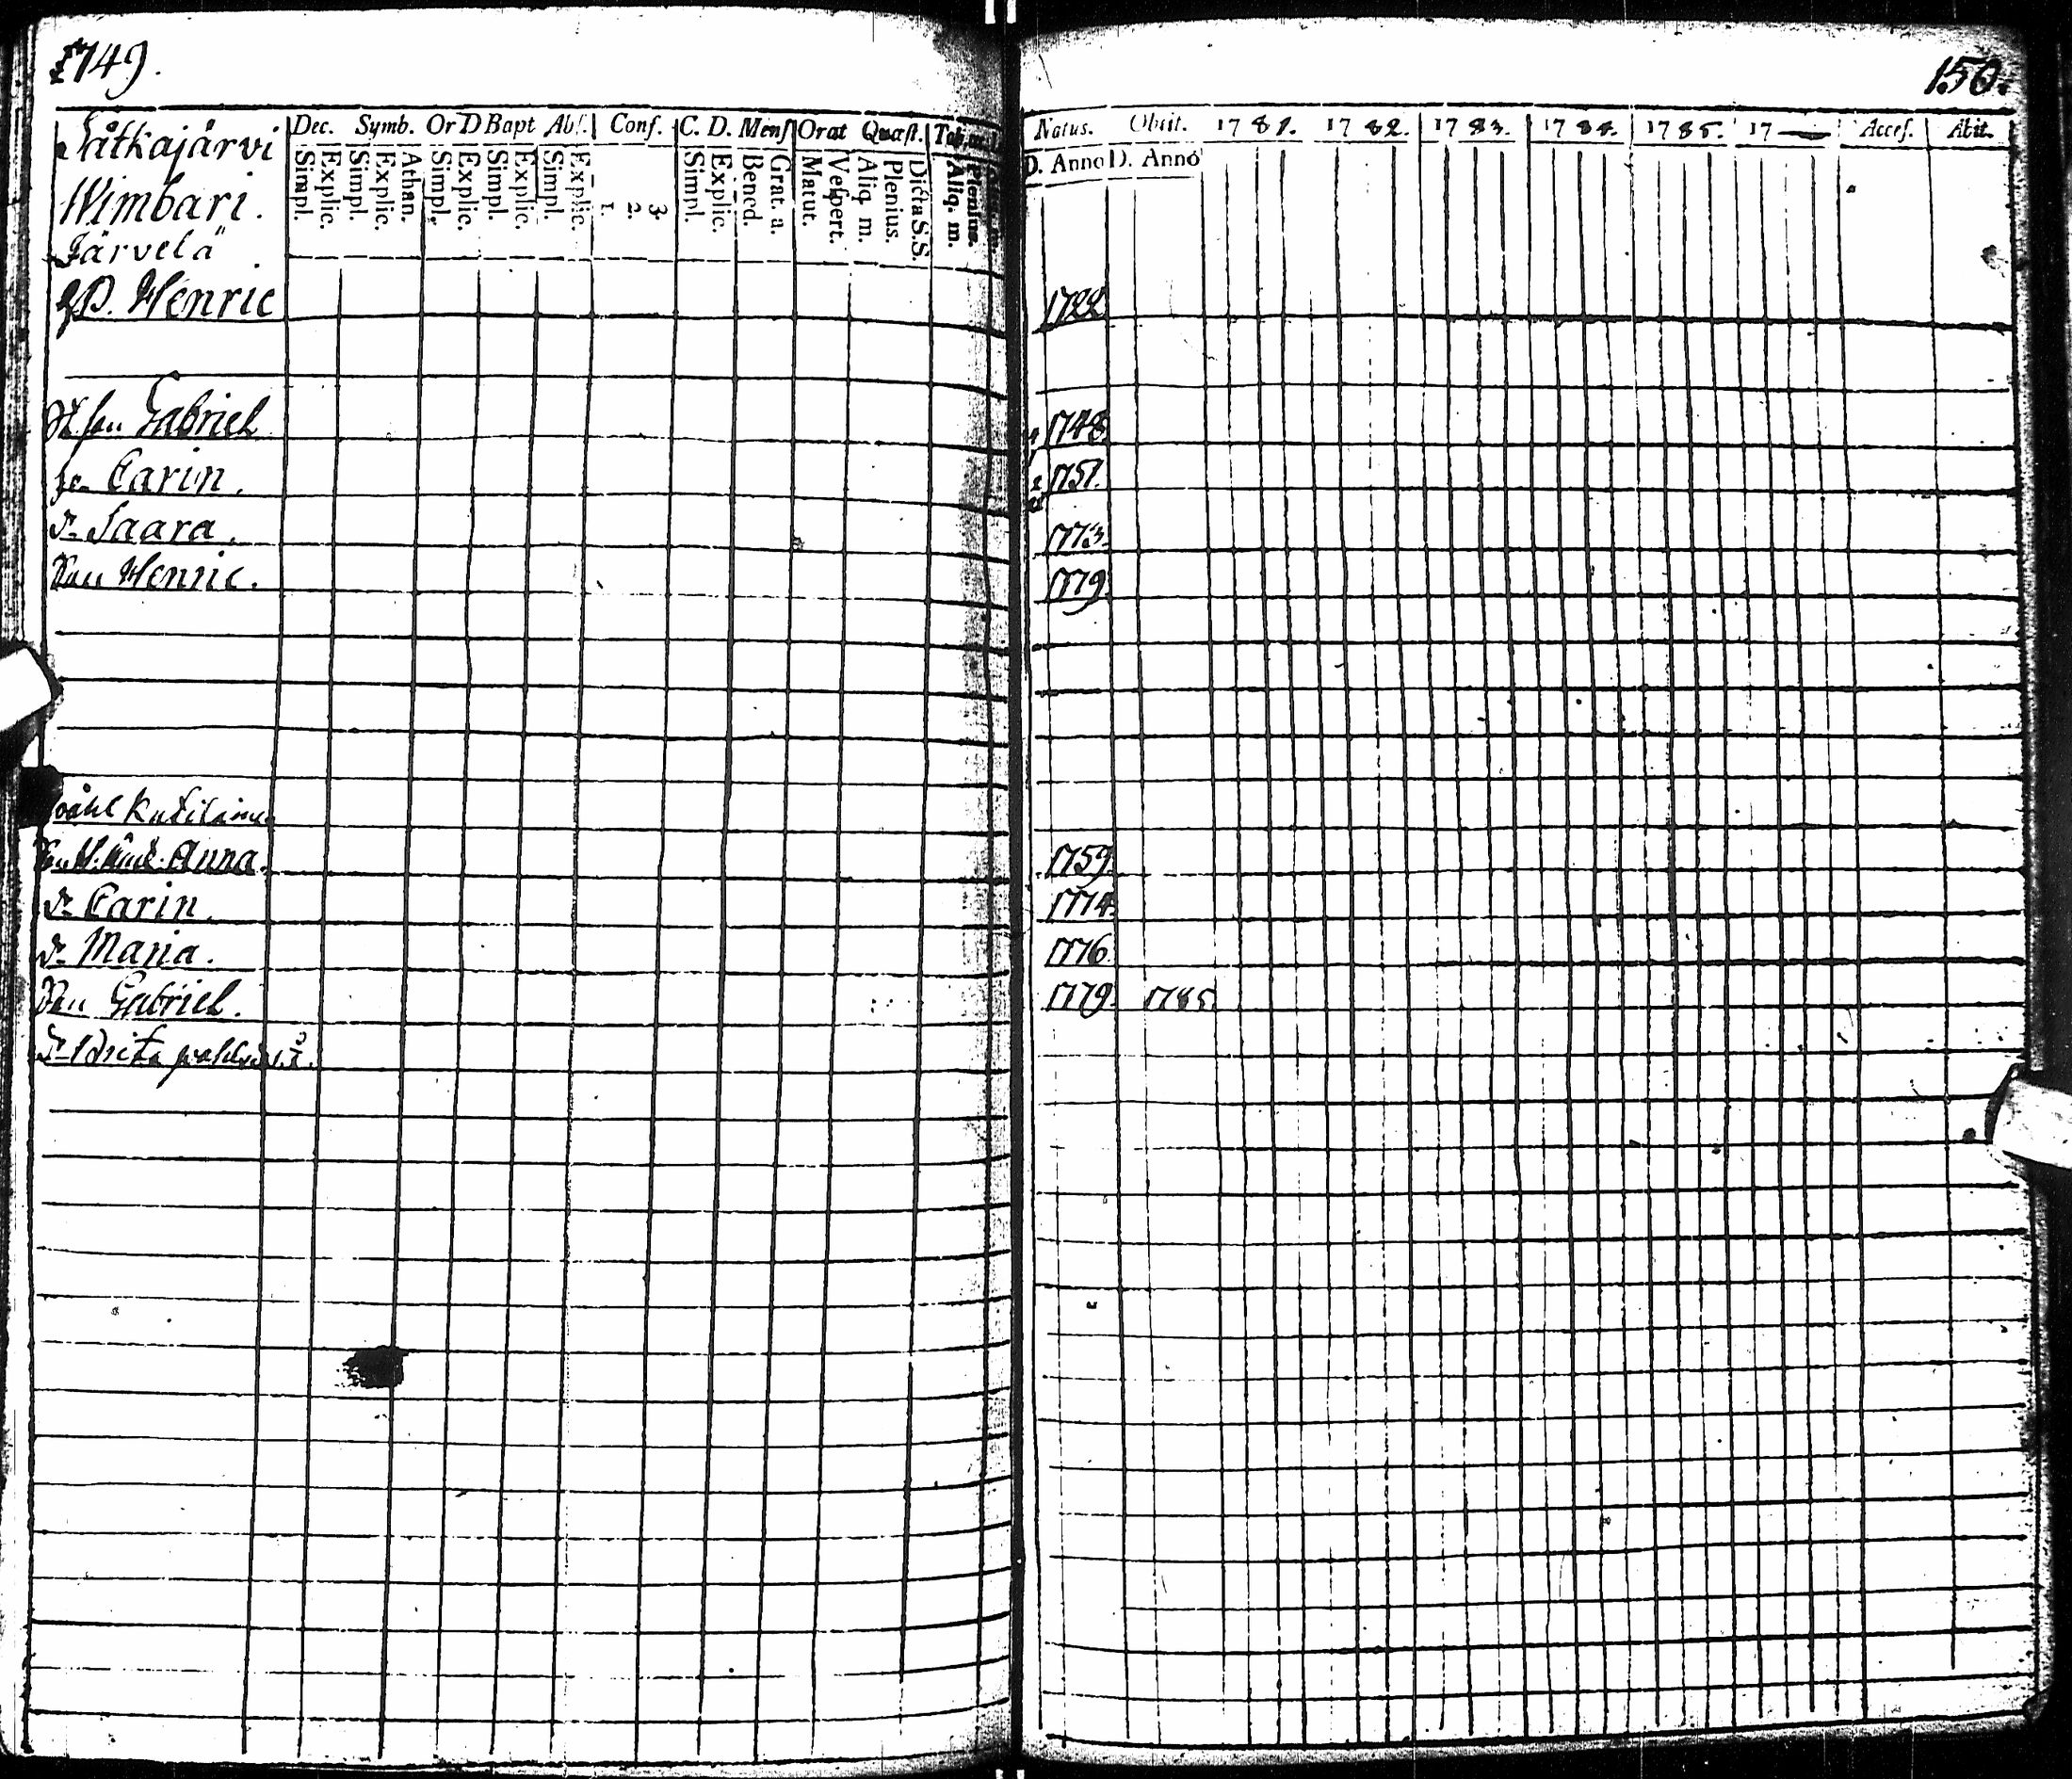 149.
Pitkajärvi
Wimbari.
Järvelä
Henric
Gabriel
Carin.
Saara.
Henric.
Anna.
Carin.
Maria.
Gabriel.
Dec. Symb. Or D Bapt Abs. Conf. C. D. Mens Orat Quæst.
Simpl. Explic. Simpl. Explic. Athan. Simpl. Explic. Simpl. Explic. Simpl. Explic. 1. 2. 3. Simpl. Explic. Bened. Grat. a. Matut. Vespert. Aliq m. Plenius. Dicta S.S. Aliq. m. Plenius.
150.
Natus. Obiit. 1781. 1782. 1783. 1784. 1785. 17— Acces. Abit.
D. Anno D. Anno
1722
1748.
1751.
1773.
1779.
1759.
1774.
1776.
1779. 1785